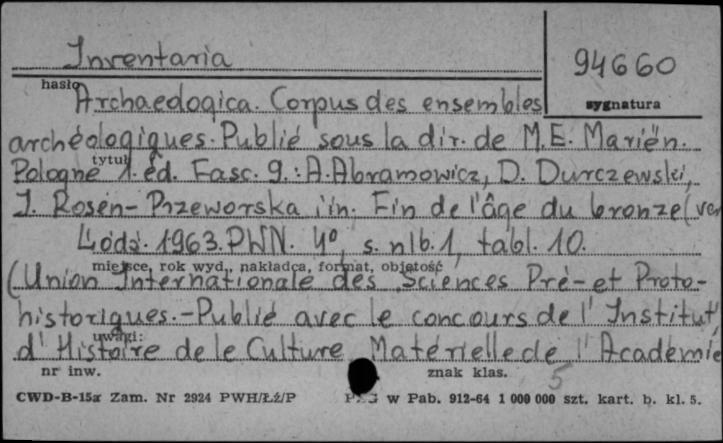 Inventaria
94660
hasło
sygnatura
Archaeologica. Corpus des ensembles
archéologiques. Publié sous la dir. de M.E. Mariën.
tytuł
Pologne 1. éd. Fasc. 9.: A. Abramowicz, D. Durczewski,
J. Rosen-Przeworska i in. Fin de l'âge du bronze (ver
Łódź. 1963. PWN. 4⁰, s. nlb. 1, tabl. 10.
miejsce, rok wyd., nakładca, format, objętość
(Union Internationale des Sciences Pré- et Proto-
historiques. - Publié avec le concours de l'Institut
uwagi:
d'Histoire de le Culture Matérielle de l'Académie
nr inw.
znak klas.
5
CWD-B-15a Zam. Nr 2924 PWH/Łż/P
w Pab. 912-64 1 000 000 szt. kart. b. kl. 5.